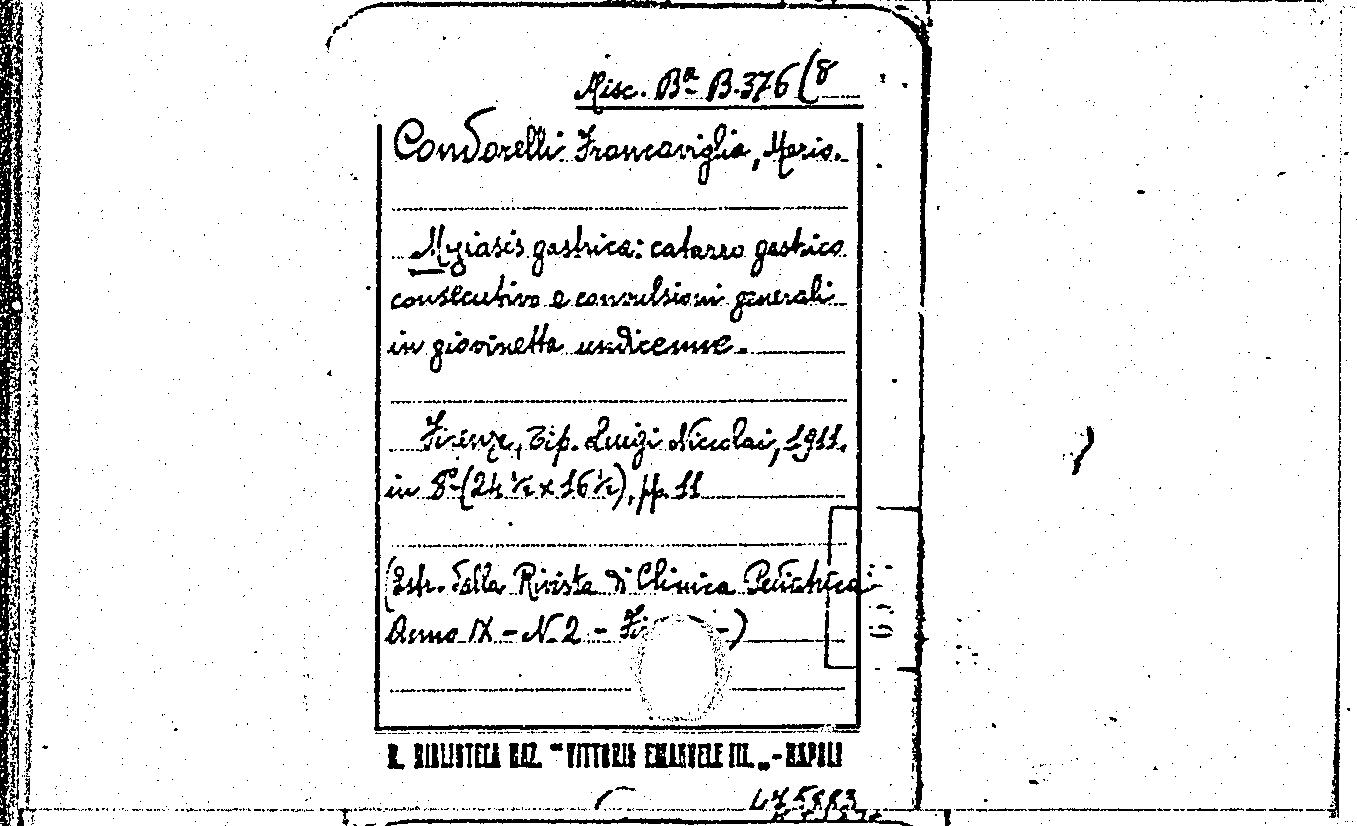 Misc. Bª B.376(8
Condorelli Francaviglia, Mario.
Myiasis gastrica: catarro gastrico
consecutivo e convulsioni generali
in giovinetta undicenne.
Firenze, Tip. Luigi Niccolai, 1911.
in 8º (24 ½ x 16 ½), pp. 11
(Estr. dalla Rivista di Clinica Pediatrica
Anno IX - N. 2 - )
R. BIBLIOTECA NAZ. "VITTORIO EMANUELE III." - NAPOLI